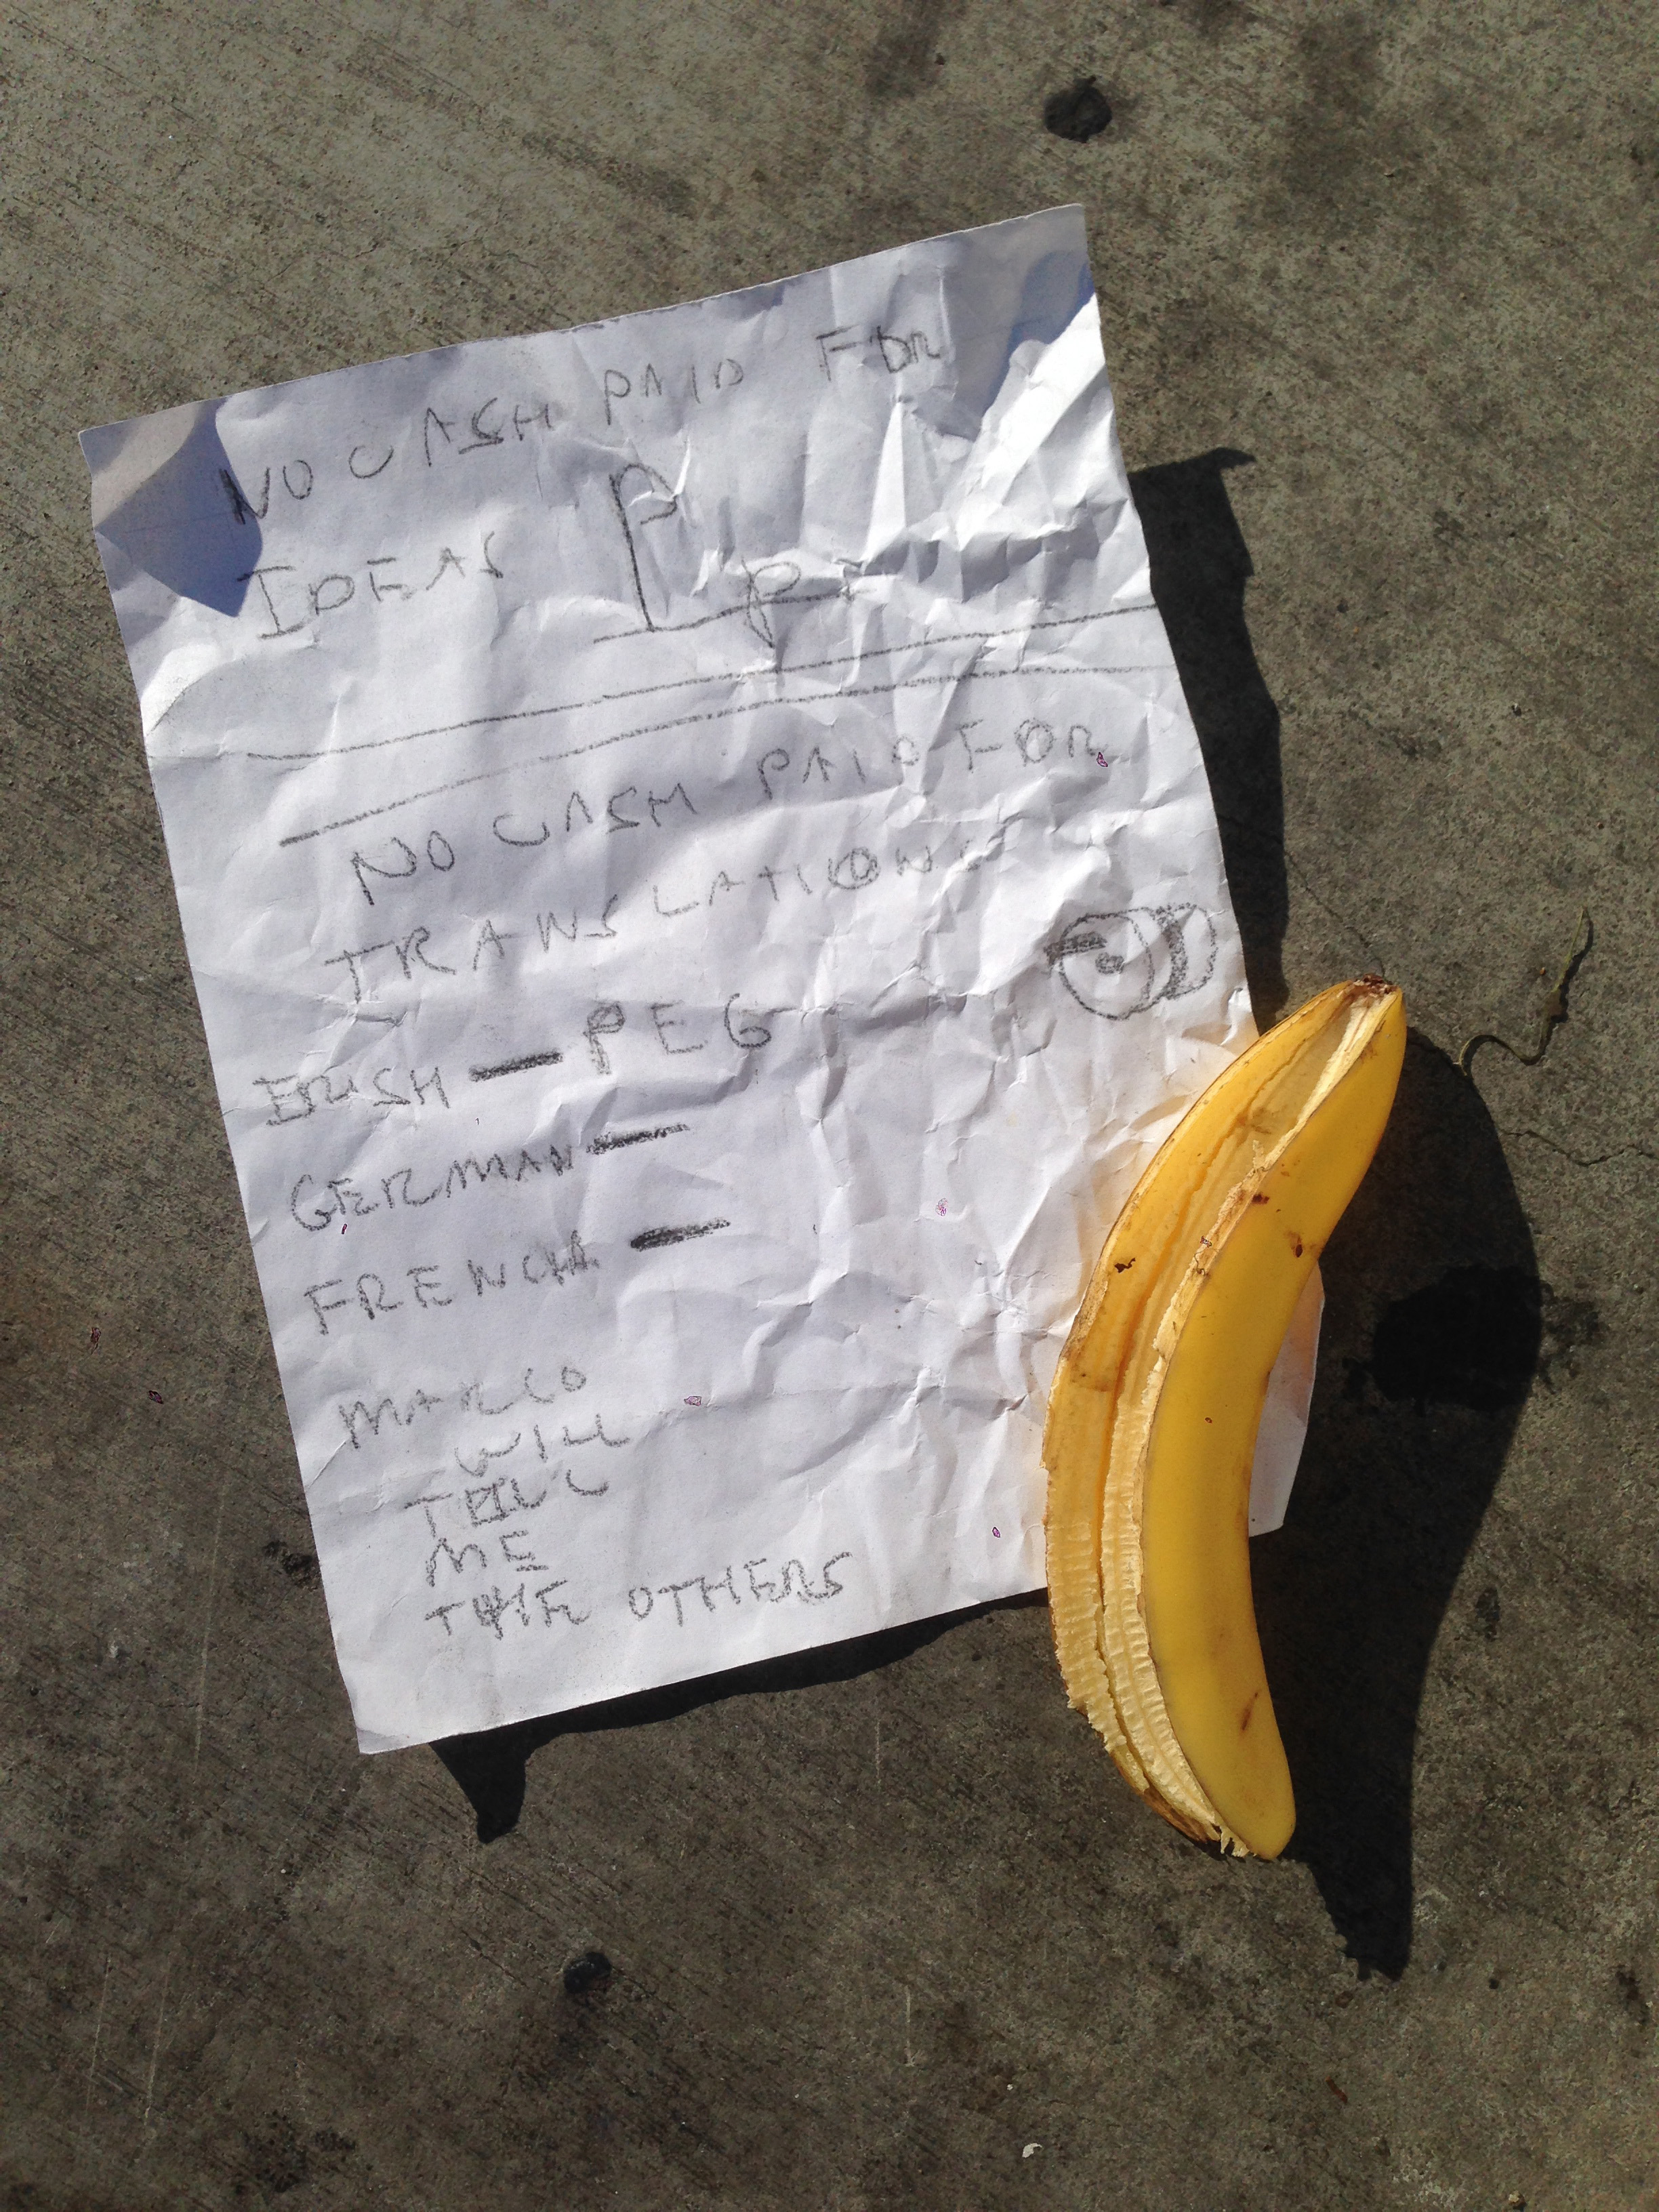 NO CASH PAID FOR
IDEAS
NO CASH PAID FOR
TRANSLATIONS
IRISH — PEG
GERMAN —
FRENCH —
MARCO
WILL
TELL
ME
THE OTHERS